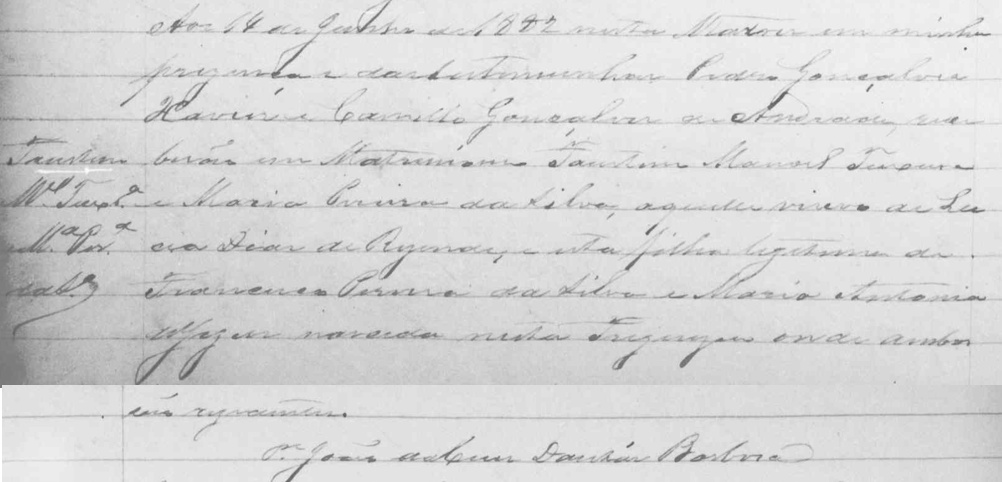 Aos 14 de Junho de 1882 nesta Matriz em minha
prezença e das testemunhas Pedro Gonçalves
Xavier e Camillo Gonçalves de Andrade, rece
Faustino
berão em Matrimonio Faustino Manoel Teixeira
M.el Teix.ra
e Maria Pereira da Silva, aquelle viuvo de Lu
M.a Per.a
cia Dias de Rezende, e esta filha legitima de
da S.a
Francisco Pereira da Silva e Maria Antonia
nascida nesta Freguezia onde ambos
são
P.e João da Cruz Dantas Barbosa